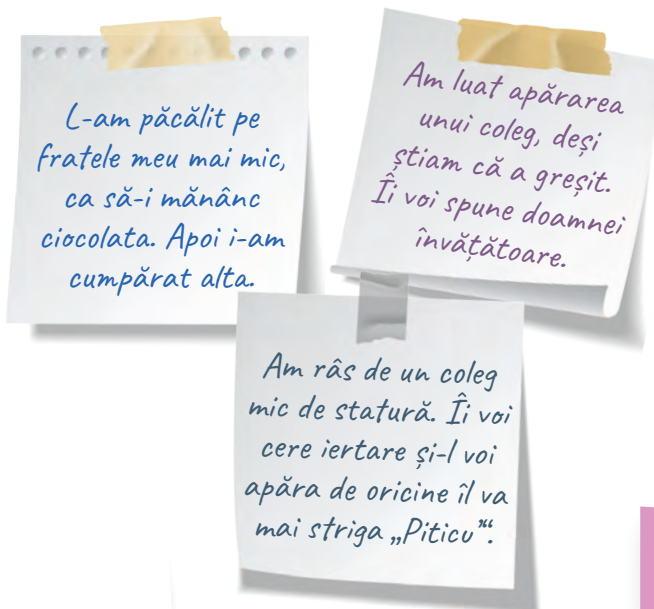 L-am păcălit pe
fratele meu mai mic,
ca să-i mănânc
ciocolata. Apoi i-am
cumpărat alta.
Am luat apărarea
unui coleg, deși
știam că a greșit.
Îi voi spune doamnei
învățătoare.
Am râs de un coleg
mic de statură. Îi voi
cere iertare și-l voi
apăra de oricine îl va
mai striga „Piticu”“.